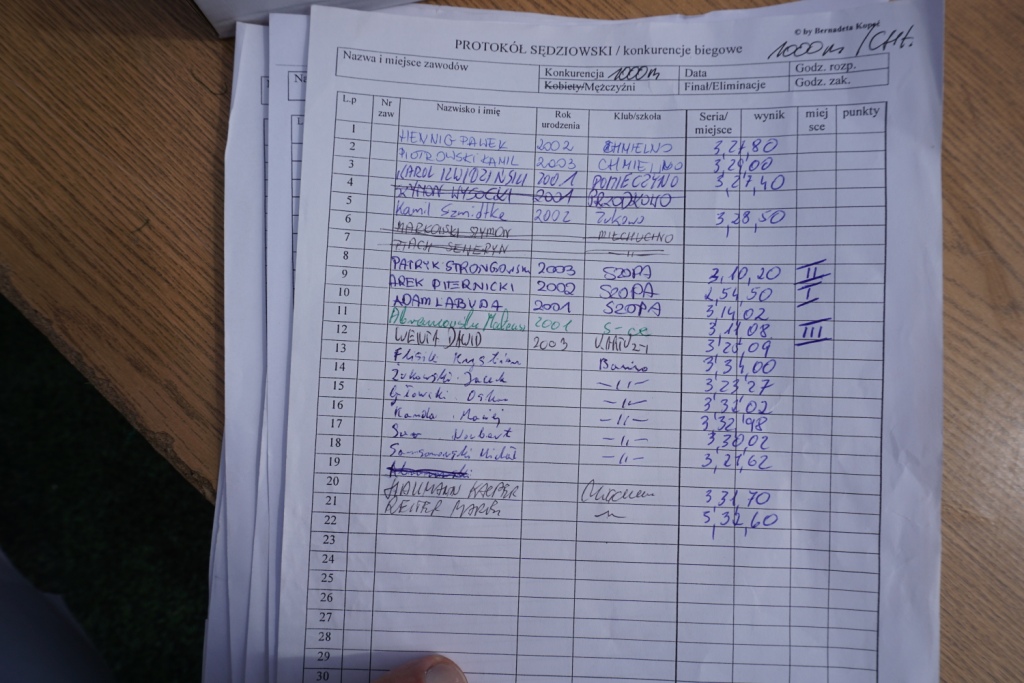 © by Bernadeta Kopeć
PROTOKÓŁ SĘDZIOWSKI / konkurencje biegowe 1000m / CHŁ.
Nazwa i miejsce zawodów Konkurencja 1000m Data Godz. rozp.
Kobiety/Mężczyźni Finał/Eliminacje Godz. zak.
L.p Nr zaw Nazwisko i imię Rok urodzenia Klub/szkoła Seria/ miejsce wynik miej sce punkty
1 HENNIG PAWEŁ 2002 CHMIELNO 3,27,80
2 PIOTROWSKI KAMIL 2003 CHMIELNO 3,29,00
3 KAROL 2001 POMIECZYNO 3,27,40
4 SZYMON WYSOCKI 2001 PRZODKOWO
5 Kamil Szmidtke 2002 Żukowo 3,28,50
6 MARKOWSKI SZYMON MIECHUCINO
7 SEWERYN —„—
8 PATRYK STRONGOWSKI 2003 SZOPA 3,10,20 II
9 AREK PIERNICKI 2002 SZOPA 2,54,50 I
10 ADAM LABUDA 2001 SZOPA 3,14,02
11 2001 3,11,08 III
12 DAWID 2003 3,25,09
13 Krystian 3,34,00
14 Żukowski Jacek —„— 3,23,27
15 —„—
16 Maciej —„— 3,32,98
17 Norbert —„— 3,30,02
18 Michał —„— 3,21,62
19
20 HALLMANN KACPER 3,31,70
21 REITER 3,32,60
22
23
24
25
26
27
28
29
30